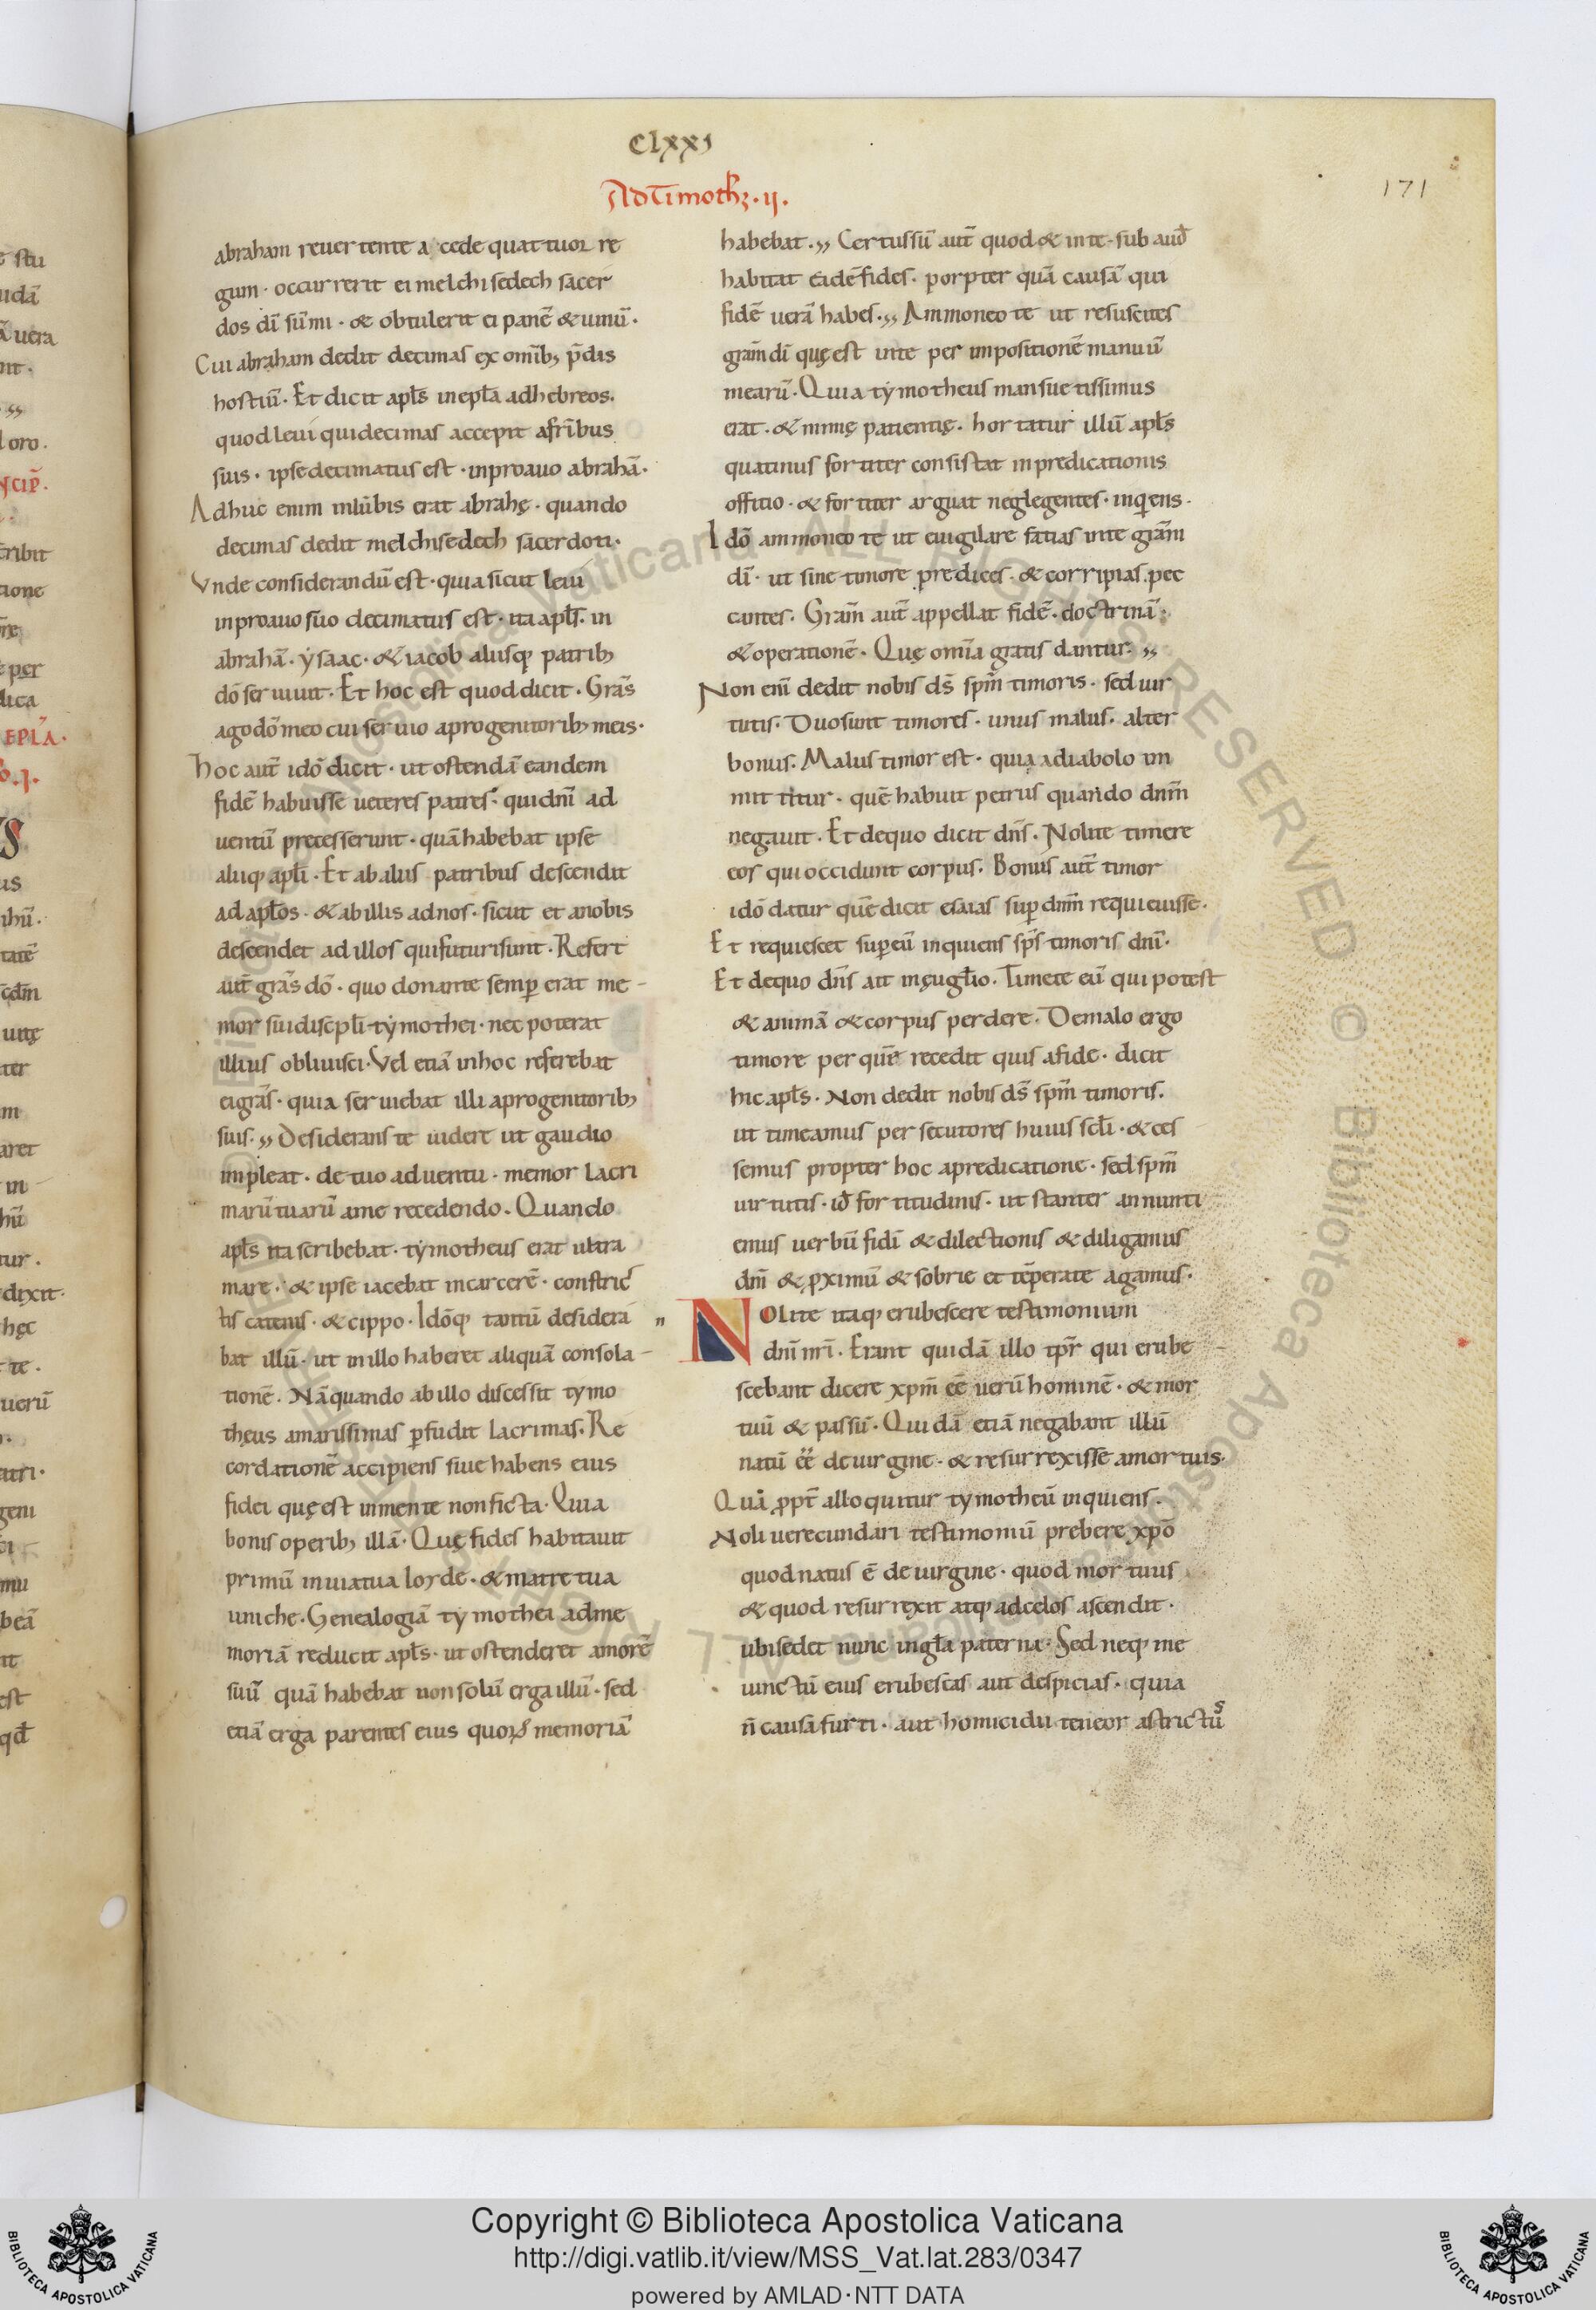 clxxi
Ad Timoth&#42859;·ii·
171
abraham reuertente a cede quattuor re
gum· occurrerit ei melchisedech sacer
dos dī sūmi· & obtulerit ei panē & uinū·
Cui abraham dedit decimas ex omībꝫ p̄dis
hostiū· Et dicit apl̄s in epl̄a ad hebreos·
quod leui qui decimas accepit a fr̄ibus
suis· ipse decimatus est· in proauo abrahā·
Adhuc enim in lūbis erat abrahę· quando
decimas dedit melchisedech sacerdoti·
Vnde considerandū est· quia sicut leui
in proauo suo decimatus est· ita apl̄s· in
abrahā· ẏsaac· & iacob aliisqꝫ patribꝫ
dō seruiuit· Et hoc est quod dicit· Grās
ago dō meo cui seruio a progenitoribꝫ meis·
hoc aut̄ idō dicit· ut ostendā eandem
fidē habuisse ueteres patres· qui dnī ad
uentū precesserunt· quā habebat ipse
aliiqꝫ apl̄i· Et ab aliis patribus descendit
ad apl̄os· & ab illis ad nos· sicut et a nobis
descendet ad illos qui futuri sunt· Refert
aut̄ grās dō· quo donante semꝑ erat me-
mor sui discipl̄i tẏmothei· nec poterat
illius obliuisci· Vel etiā in hoc referebat
ei grās· quia seruiebat illi a progenitoribꝫ
suis· ,, Desiderans te uidere ut gaudio
impleat· de tuo aduentu· memor lacri
marū tuarū a me recedendo· Quando
apl̄s ita scribebat· tẏmotheus erat ultra
mare· & ipse iacebat in carcerē· constric
tis catenis· & cippo· Idōqꝫ tantū desidera
bat illū· ut in illo haberet aliquā consola-
tionē· Nā quando ab illo discessit tymo
theus amarissimas ꝑfudit lacrimas· Re
cordationē accipiens siue habens eius
fidei quę est in mente non ficta· Quia
bonis operibꝫ illā· Quę fides habitauit
primū in uia tua loyde· & matre tua
uniche· Genealogiā tymothei ad me
moriā reducit apl̄s· ut ostenderet amorē
suū quā habebat non solū erga illū· sed
etiā erga parentes eius quoꝝ memoriā
habebat· ,, Certus sū aut̄ quod & in te· subaud̄
habitat eadē fides· porpter quā causā qui
fidē uerā habes· ,, Ammoneo te ut resuscites
gram̄ dī quę est in te per impositionē manuū
mearū· Quia tẏmotheus mansuetissimus
erat· & nimię patientię· hortatur illū apl̄s
quatinus fortiter consistat in predicationis
offitio· & fortiter arguat neglegentes· inqens·
Idō ammoneo te ut euigilare fatias in te gram̄
dī· ut sine timore predices· & corripias pec
cantes· Gram̄ aut̄ appellat fidē· doctrinā·
& operationē· Quę omīa gratis dantur· ,,
Non enī dedit nobis ds̄ spm̄ timoris· sed uir
tutis· Duo sunt timores· unus malus· alter
bonus· Malus timor est· quia a diabolo im
mittitur· quē habuit petrus quando dnm̄
negauit· Et de quo dicit dns̄· Nolite timere
eos qui occidunt corpus· Bonus aut̄ timor
idō datur quē dicit esaias suꝑ dnm̄ requieuisse·
Et requiescet suꝑ eū inquiens sps̄ timoris dnī·
Et de quo dns̄ ait in ęugl̄io· Timete eū qui potest
& animā & corpus perdere· De malo ergo
timore per quē recedit quis a fide· dicit
hic apl̄s· Non dedit nobis ds̄ spm̄ timoris·
ut timeamus persecutores huius scl̄i· & ces
semus propter hoc a predicatione· sed spm̄
uirtutis· id̄ fortitudinis· ut stanter annunti
emus uerbū fidī & dilectionis & diligamus
dnī & ꝓximū & sobrie et tēperate agamus·
Nolite itaqꝫ erubescere testimonium
dnī nrī· Erant quidā illo tpr̄ qui erube
scebant dicere xpm̄ ēē uerū hominē· & mor
tuū & passū· Quidā etiā negabant illū
natū ēē de uirgine· & resurrexisse a mortuis·
Quā ꝓpt̄ alloquitur tymotheū inquiens·
Noli uerecundari testimoniū prebere xpō
quod natus ē de uirgine· quod mortuus
& quod resurrexit atqꝫ ad celos ascendit·
ubi sedet nunc in gl̄a paterna· Sed neqꝫ me
uinctū eius erubescas aut despicias· quia
n̄ causa furti· aut homicidii teneor astrictus
Copyright © Biblioteca Apostolica Vaticana
http://digi.vatlib.it/view/MSS_Vat.lat.283/0347
powered by AMLAD·NTT DATA